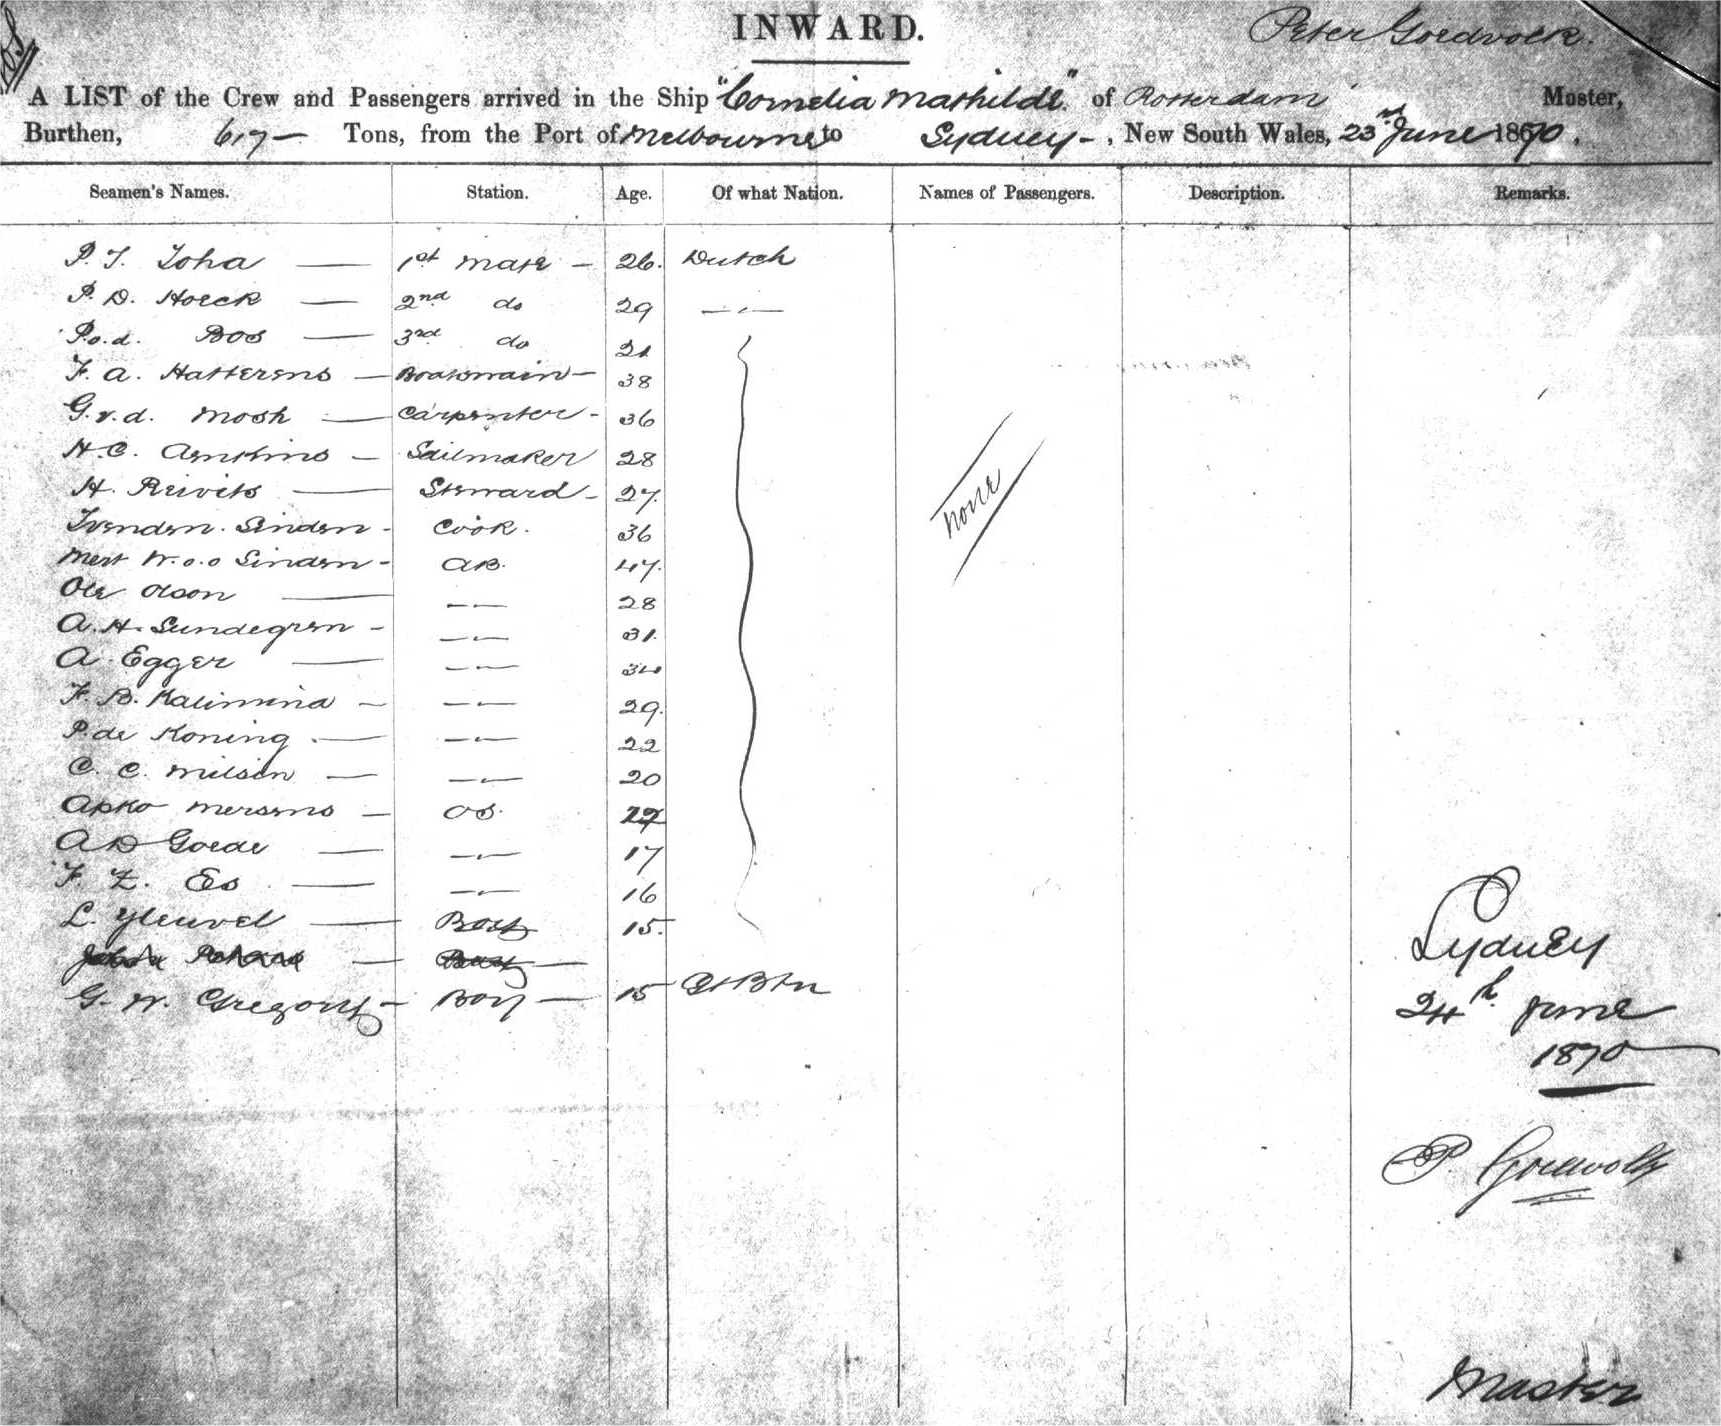 INWARD.
Peter Goedvolk.
A LIST of the Crew and Passengers arrived in the Ship "Cornelia Mathilde" of Rotterdam Master,
Burthen, 617 — Tons, from the Port of Melbourne to Sydney - , New South Wales, 23rd June 1870.
Seamen's Names. Station. Age. Of what Nation. Names of Passengers. Description. Remarks.
P. T. Toha — 1st Mate — 26. Dutch
P. D. Hoeck — 2nd do 29 —"—
P.o.d. Bos — 3rd do 21
F. A. Hatterens — Boatswain — 38
G. v. d. Mosh — Carpenter - 36
H. C. — Sailmaker 28
H. Reivits — Steward - 27.
Sinden - Cook. 36
Sinden - AB. 47.
Ole Olson — —"— 28
A. H. Sundegren - —"— 31.
A. Egger — —"— 34
F. B. Kalimind — —"— 29.
P. de Koning — —"— 22
C. C. Milsen — —"— 20
Apko Mersens — OS.
A D Goede — —"— 17
F. Z. Es — —"— 16
L. — Boy 15.
G. W. Gregory - Boy — 15 Gt Btn
None
Sydney
24th June
1870
P. Goedvolk
Master